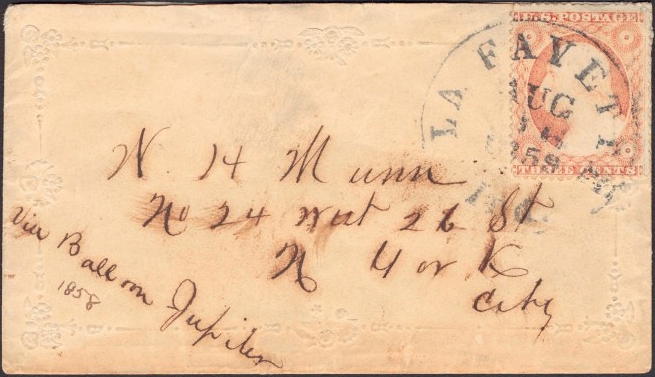 U.S. POSTAGE
LA FAYETT
AUG
1859
THREE CENTS
N. H Munn
No 24 West 26 St
N York
City
Via Balloon Jupiter
1858